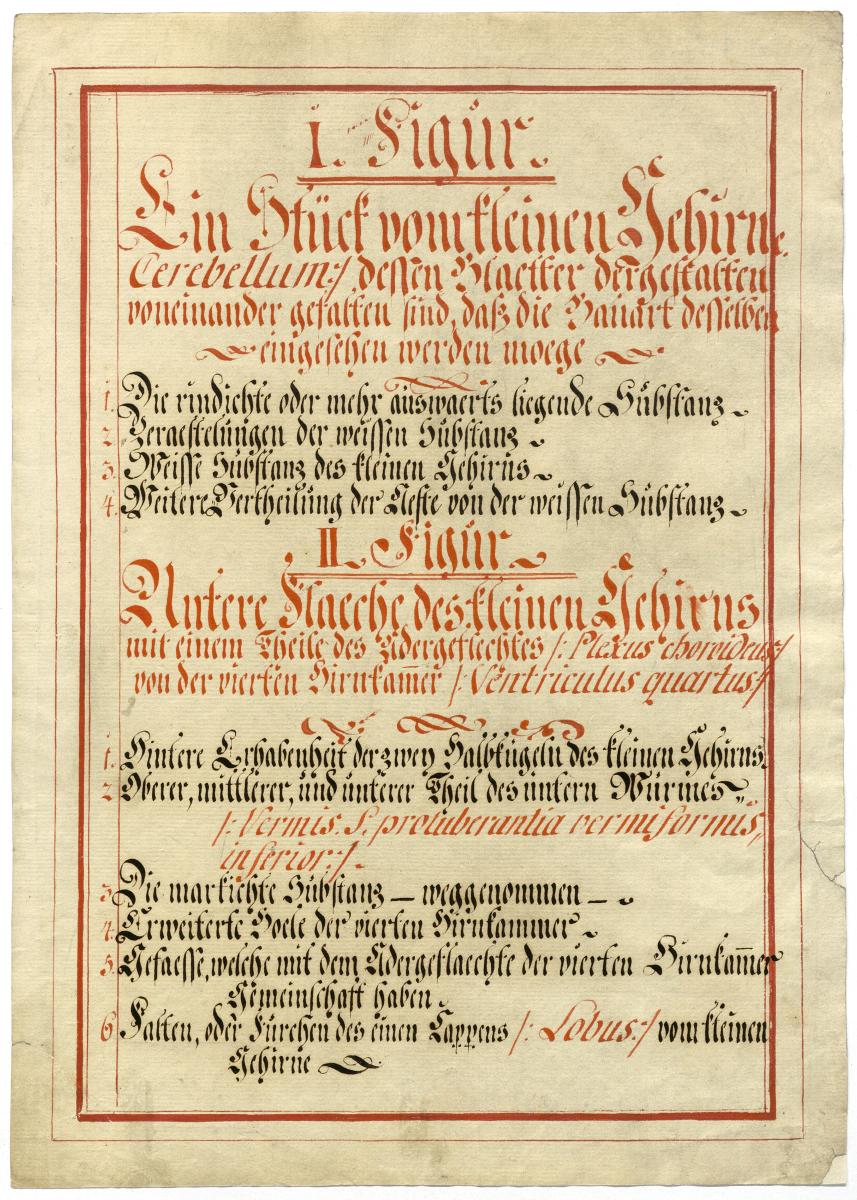 I. Figur.
Ein Stück vom kleinen Gehirne.
Cerebellum:/ dessen Blaetter dergestalten
voneinander gefalten sind, daß die Bauart desselben
eingesehen werden moege
1. Die rindichte oder mehr auswaerts liegende Substanz
2. Veraestelungen der weissen Substanz
3. Weisse Substanz des kleinen Gehirns
4. Weitere Vertheilung der Aeste von der weissen Substanz
II. Figur.
Untere Flaeche des kleinen Gehirns
mit einem Theile des Adergeflechtes /: Plexus choroideus:/
von der vierten Hirnkam̅er /: Ventriculus quartus:/
1. Hintere Erhabenheit der zwey Halbkugeln des kleinen Gehirns.
2 Oberer, mittlerer, und unterer Theil des untern Wurmes
/: Vermis. S. protuberantia vermiformis,
inferior:/
3. Die markichte Substanz — weggenommen —
4. Erweiterte Hoele der vierten Hirnkammer
5. Gefaesse, welche mit dem Adergeflaechte der vierten Hirnkam̅er
Gemeinschaft haben
6 Falten, oder Furchen des einen Lappens /: Lobus:/ vom kleinen
Gehirne